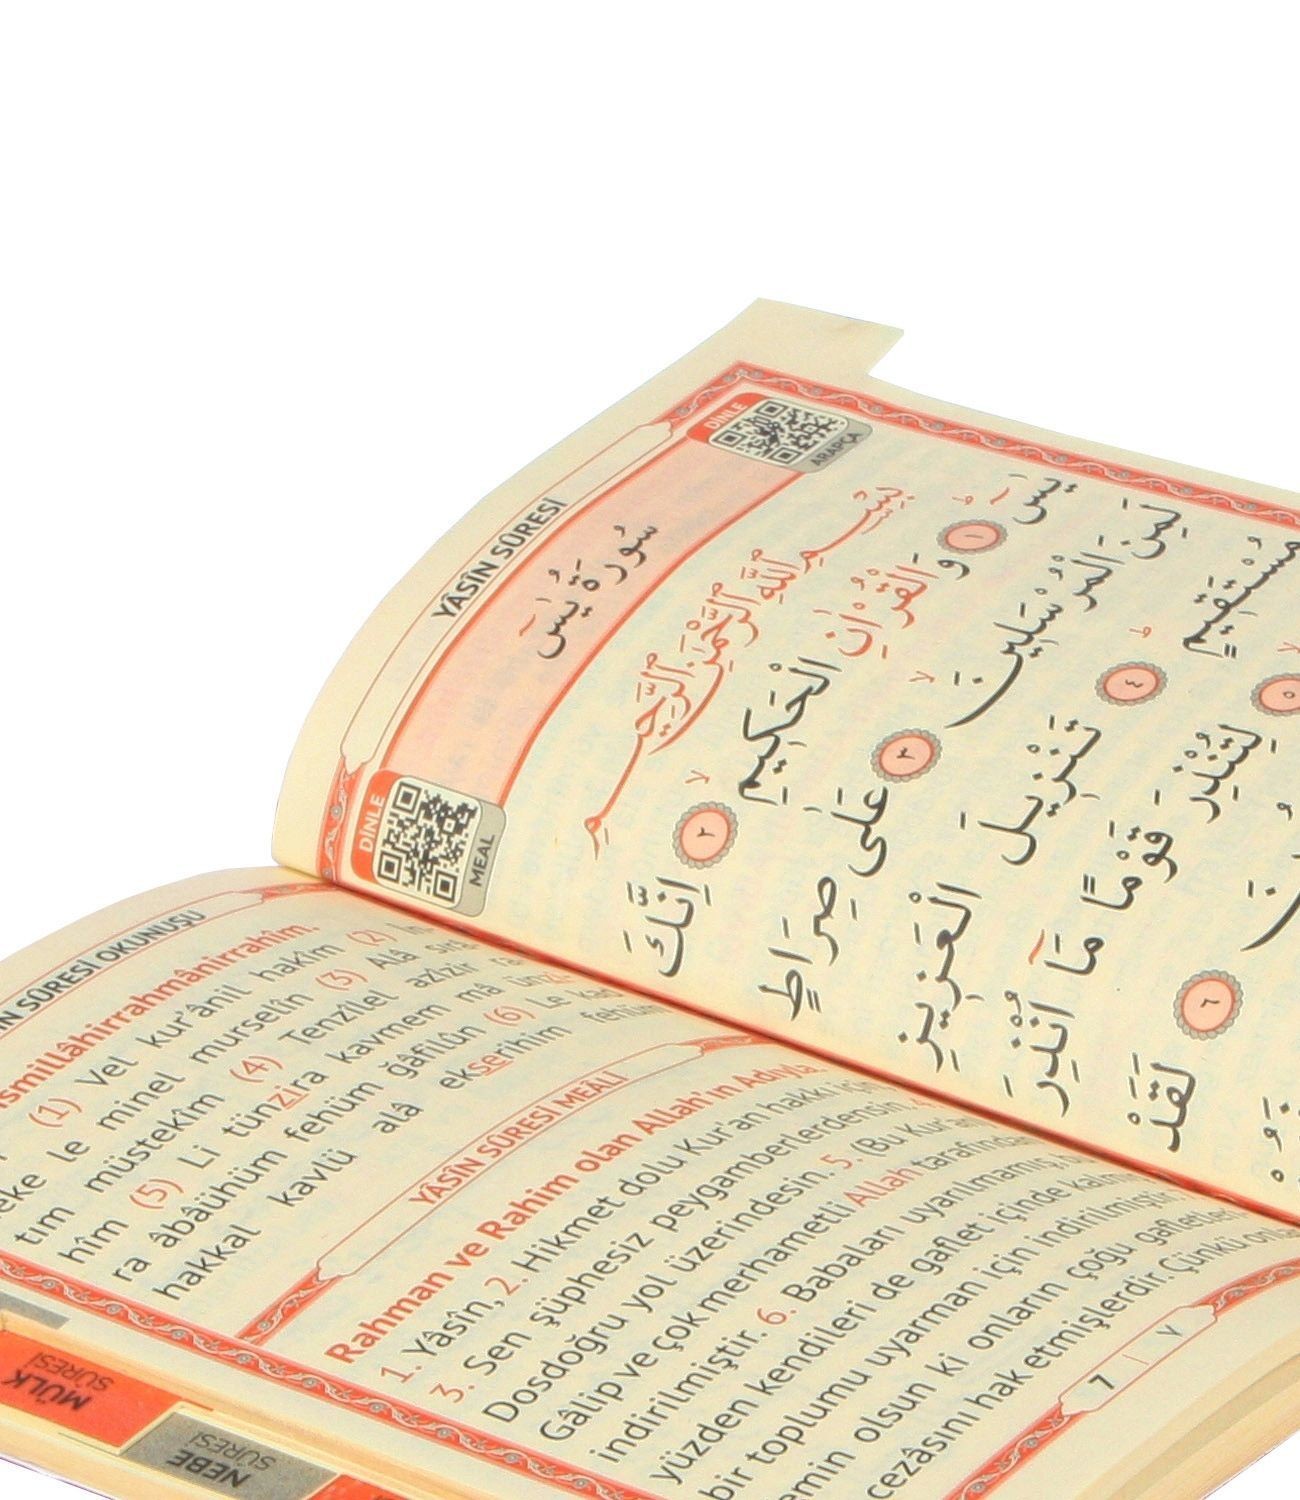 YÂSÎN SÛRESİ
DİNLE
ARAPÇA
سُورَةُ يٰسٓ
DİNLE
MEAL
بِسْمِ اللّٰهِ الرَّحْمٰنِ الرَّحِيمِ
يٰسٓ ﴿١﴾ وَالْقُرْاٰنِ الْحَكِيمِ ﴿٢﴾ اِنَّكَ
لَمِنَ الْمُرْسَلِينَ ﴿٣﴾ عَلٰى صِرَاطٍ
مُسْتَقِيمٍ ﴿٤﴾ تَنْزِيلَ الْعَزِيزِ
﴿٥﴾ لِتُنْذِرَ قَوْمًا مَٓا اُنْذِرَ
﴿٦﴾ لَقَدْ
SÛRESİ OKUNUŞU
(1) Vel kur'ânil hakîm (2)
le minel murselîn (3) Alâ
müstekîm (4) Tenzîlel azîzir
hîm (5) Li tünzira kavmem mâ
ra âbâühüm fehüm ğâfilûn (6) Le
hakkal kavlü alâ ekserihim
YÂSÎN SÛRESİ MEÂLİ
Rahman ve Rahim olan Allah'ın Adıyla.
1. Yâsîn, 2. Hikmet dolu Kur'an hakkı için
3. Sen şüphesiz peygamberlerdensin.
Dosdoğru yol üzerindesin. 5. (Bu Kur'an
Gâlip ve çok merhametli Allah tarafından
indirilmiştir. 6. Babaları uyarılmamış,
yüzden kendileri de gaflet içinde
bir toplumu uyarman için indirilmiştir.
olsun ki onların çoğu
cezâsını hak etmişlerdir. Çünkü
7 | ٧
MÜLK
SÛRESİ
NEBE
SÛRESİ